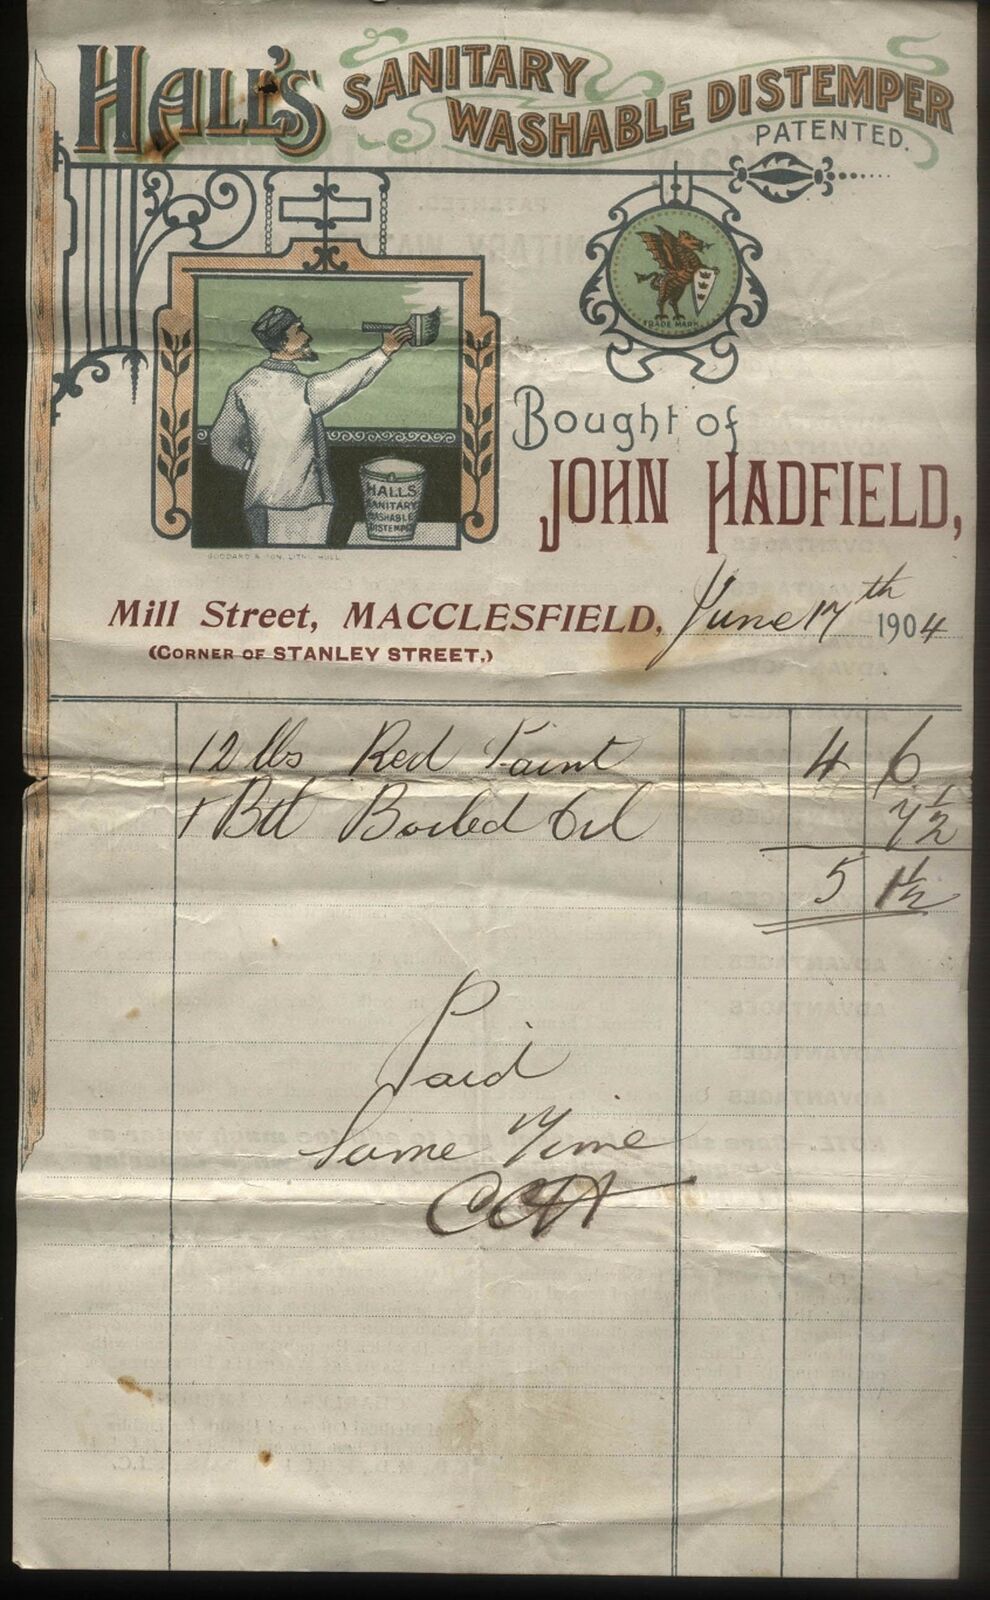 HALL'S SANITARY WASHABLE DISTEMPER
PATENTED.
TRADE MARK
HALLS
SANITARY
WASHABLE
DISTEMPER
GODDARD & SON, LITHO, HULL
Bought of
JOHN HADFIELD,
Mill Street, MACCLESFIELD, June 17th 1904
(CORNER OF STANLEY STREET,)
12 lbs Red Paint 4 6
1 Btl Boiled Oil 7½
5 1½
Paid
Same Time